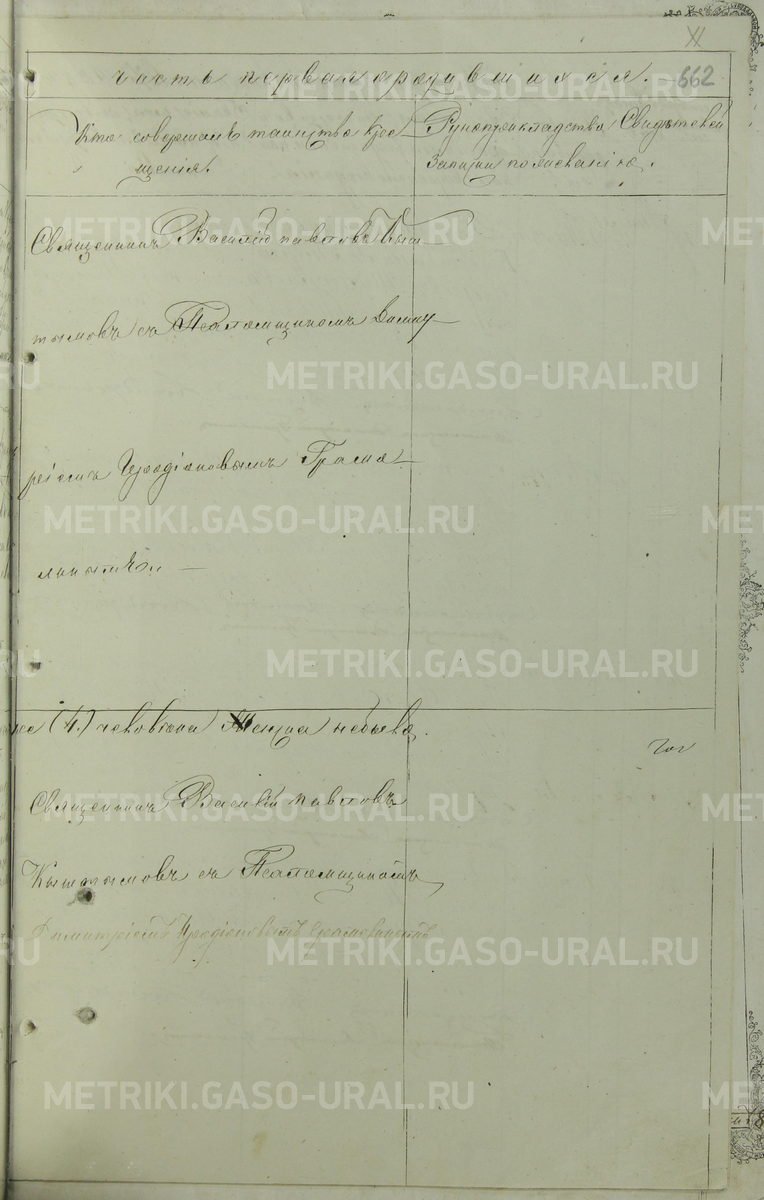 XI
часть первая о родившихся. 662
Кто совершалъ таинство кре-
щенія.
Рукоприкладство Свидѣтелей
записи по желанію.
Священникъ Василій Павловъ Кыш-
тымовъ съ Псаломщикомъ Димит-
ріемъ Иродіоновымъ
(4.) человѣка небыло.
Священникъ Василій Павловъ
Кыштымовъ съ Псаломщикомъ
Димитріемъ Иродіоновымъ
METRIKI.GASO-URAL.RU